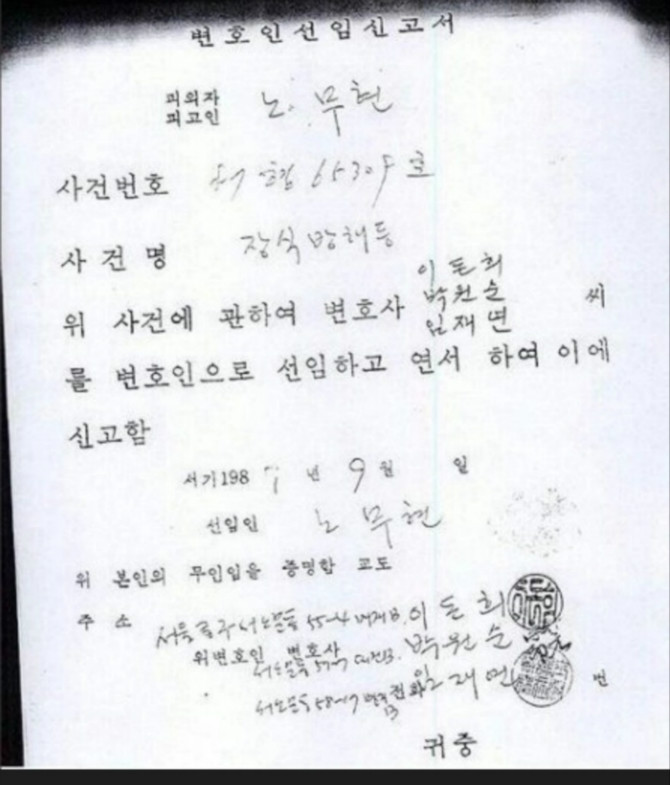 변호인선임신고서
피의자
피고인 노무현
사건번호 형 65309호
사건명 장식방해등
이돈희
위 사건에 관하여 변호사 박원순 씨
임재연
를 변호인으로 선임하고 연서 하여 이에
신고함
서기1987년 9월 일
선임인 노무현
위 본인의 무인임을 증명함 교도
주소 서울 중구 서소문동 55-4 이돈희
위변호인 변호사 박원순
서소문동 58-17 전화 임재연 번
귀중